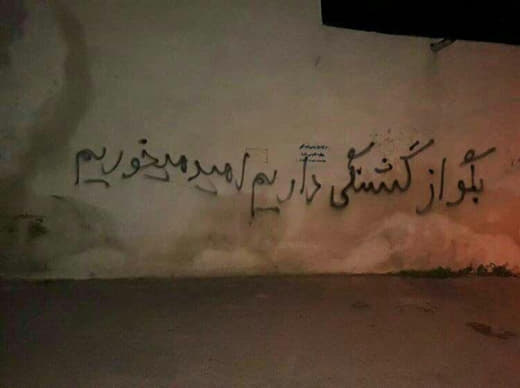 بگو از گشنگی داریم امید میخوریم